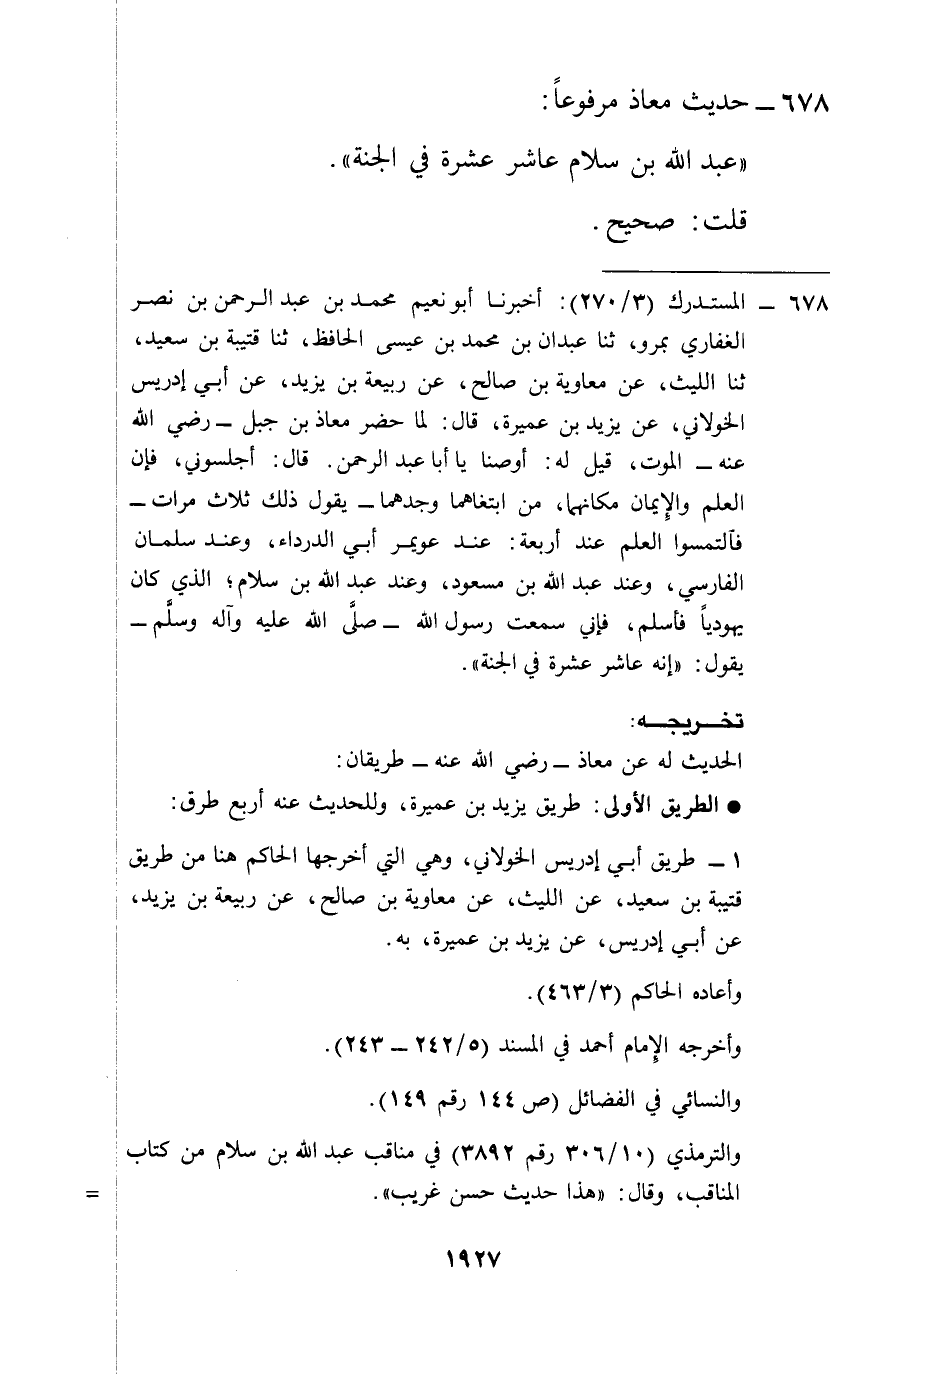 ٦٧٨ ــ حديث معاذ مرفوعاً:
«عبد الله بن سلام عاشر عشرة في الجنة».
قلت: صحيح.
٦٧٨ ــ المستدرك (٢٧٠/٣): أخبرنا أبو نعيم محمد بن عبد الرحمن بن نصر
الغفاري بمرو، ثنا عبدان بن محمد بن عيسى الحافظ، ثنا قتيبة بن سعيد،
ثنا الليث، عن معاوية بن صالح، عن ربيعة بن يزيد، عن أبي إدريس
الخولاني، عن يزيد بن عميرة، قال: لما حضر معاذ بن جبل ــ رضي الله
عنه ــ الموت، قيل له: أوصنا يا أبا عبد الرحمن. قال: أجلسوني، فإن
العلم والإيمان مكانهما، من ابتغاهما وجدهما ــ يقول ذلك ثلاث مرات ــ
فآلتمسوا العلم عند أربعة: عند عويمر أبي الدرداء، وعند سلمان
الفارسي، وعند عبد الله بن مسعود، وعند عبد الله بن سلام؛ الذي كان
يهودياً فأسلم، فإني سمعت رسول الله ــ صلَّى الله عليه وآله وسلَّم ــ
يقول: «إنه عاشر عشرة في الجنة».
تخـــريجـــه:
الحديث له عن معاذ ــ رضي الله عنه ــ طريقان:
● الطريق الأولى: طريق يزيد بن عميرة، وللحديث عنه أربع طرق:
١ ــ طريق أبي إدريس الخولاني، وهي التي أخرجها الحاكم هنا من طريق
قتيبة بن سعيد، عن الليث، عن معاوية بن صالح، عن ربيعة بن يزيد،
عن أبي إدريس، عن يزيد بن عميرة، به.
وأعاده الحاكم (٤٦٣/٣).
وأخرجه الإمام أحمد في المسند (٢٤٢/٥ ــ ٢٤٣).
والنسائي في الفضائل (ص ١٤٤ رقم ١٤٩).
والترمذي (٣٠٦/١٠ رقم ٣٨٩٢) في مناقب عبد الله بن سلام من كتاب
المناقب، وقال: «هذا حديث حسن غريب». =
١٩٢٧